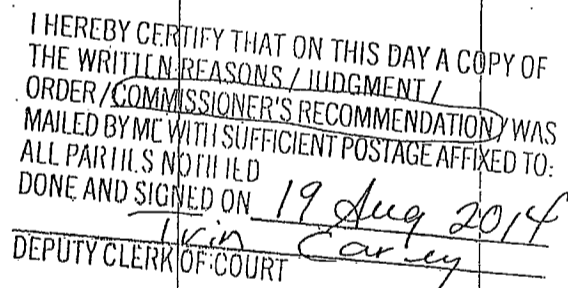 I HEREBY CERTIFY THAT ON THIS DAY A COPY OF
THE WRITTEN REASONS / JUDGMENT /
ORDER / COMMISSIONER'S RECOMMENDATION / WAS
MAILED BY ME WITH SUFFICIENT POSTAGE AFFIXED TO:
ALL PARTIES NOTIFIED
DONE AND SIGNED ON 19 Aug 2014
Carney
DEPUTY CLERK OF COURT